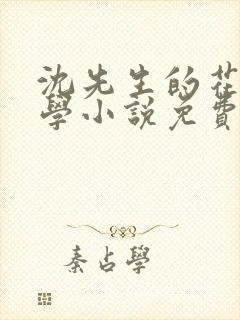 沈先生的花
學小說免費
秦占學